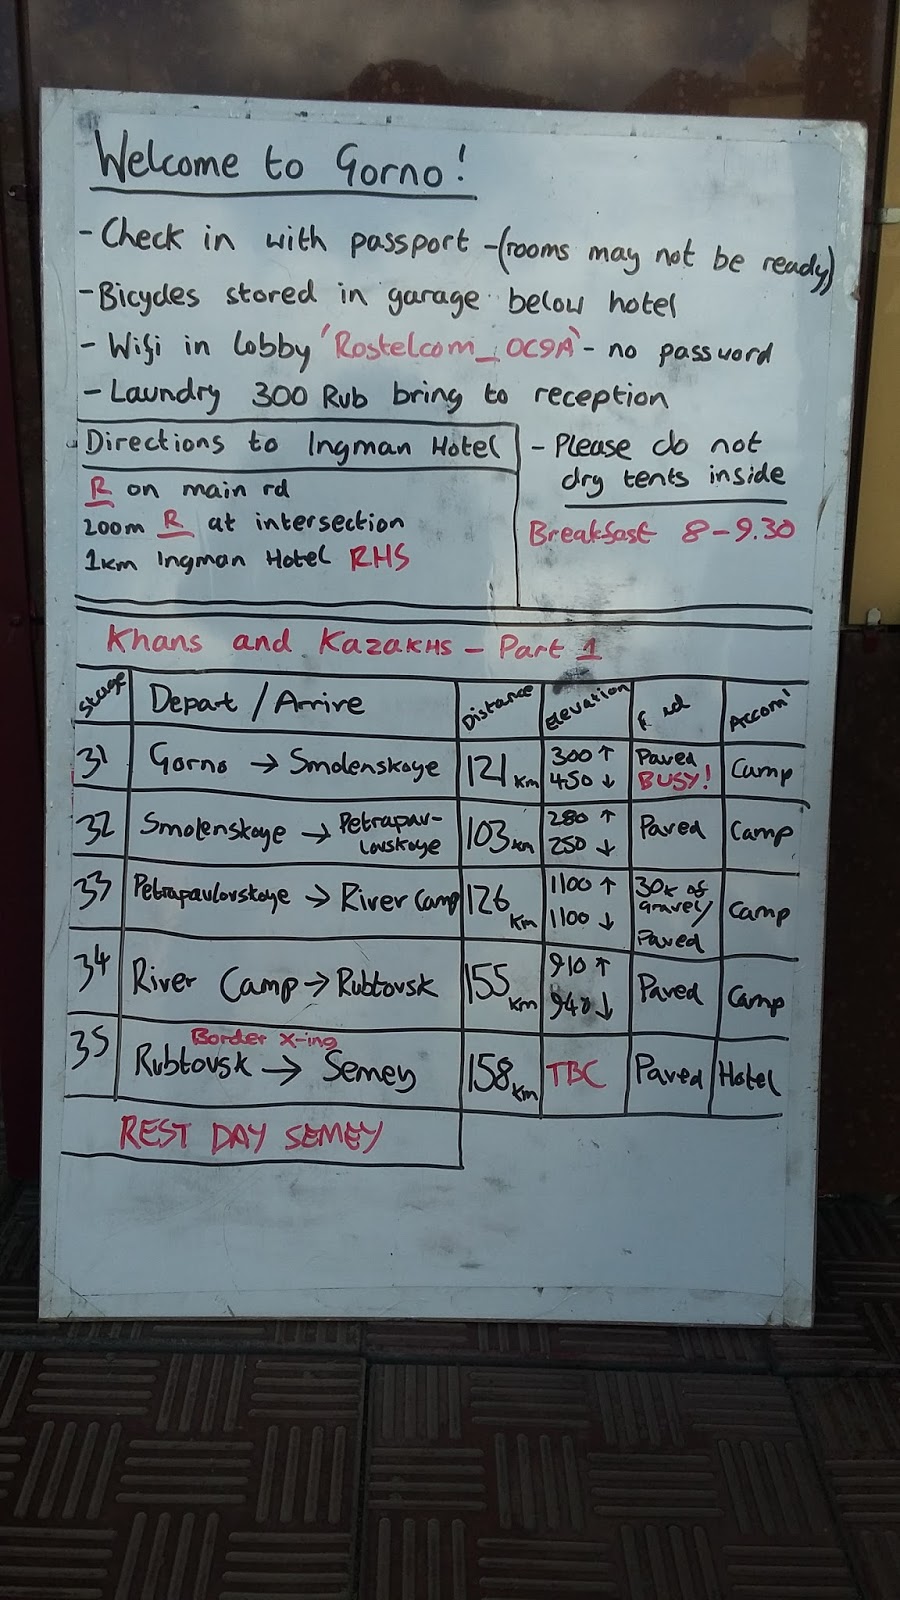 Welcome to Gorno!
- Check in with passport - (rooms may not be ready)
- Bicycles stored in garage below hotel
- Wifi in lobby 'Rostelcom_0C9A' - no password
- Laundry 300 Rub bring to reception
Directions to Ingman Hotel
R on main rd
200m R at intersection
1km Ingman Hotel RHS
- Please do not
dry tents inside
Breakfast 8-9.30
Khans and Kazakhs - Part 1
Stage Depart / Arrive Distance Elevation Accom'
31 Gorno → Smolenskoye 121 km 300 ↑ 450 ↓ Paved BUSY! Camp
32 Smolenskoye → Petrapav-lovskoye 103 km 280 ↑ 250 ↓ Paved Camp
33 Petrapavlovskoye → River Camp 126 km 1100 ↑ 1100 ↓ 30k of gravel/ Paved Camp
34 River Camp → Rubtovsk 155 km 910 ↑ 940 ↓ Paved Camp
Border X-ing
35 Rubtovsk → Semey 158 km TBC Paved Hotel
REST DAY SEMEY